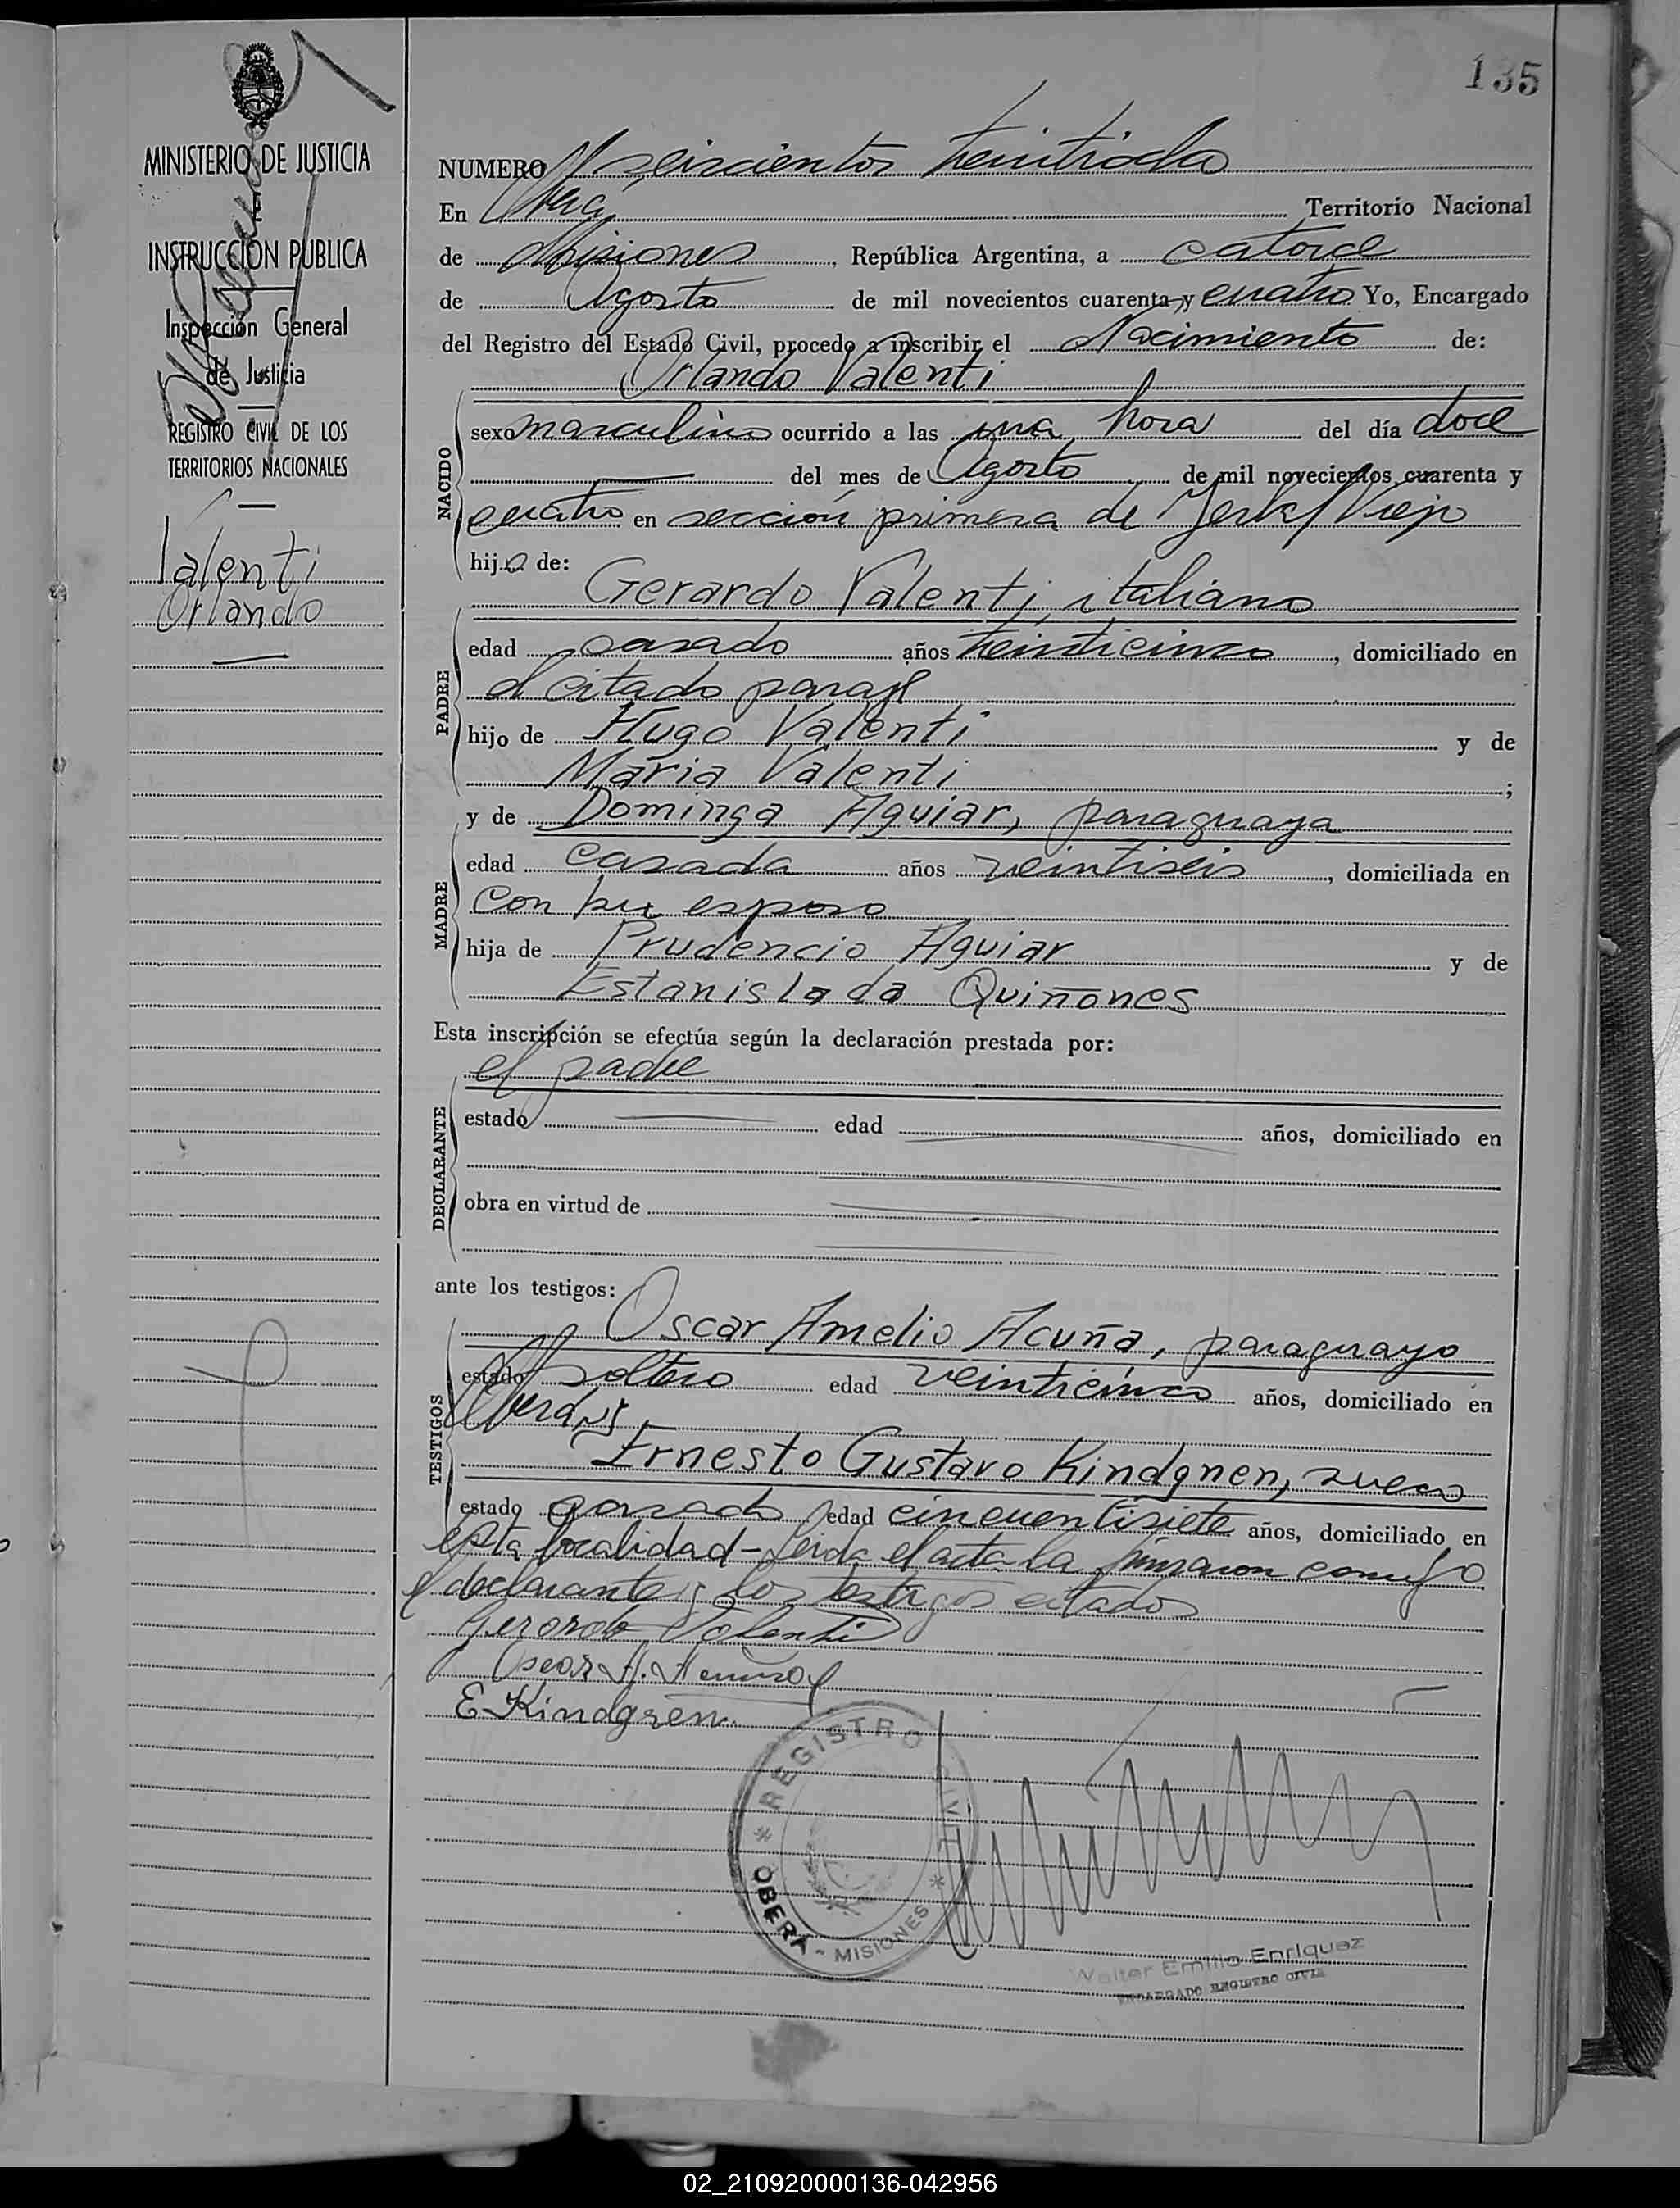 135
MINISTERIO DE JUSTICIA
E
INSTRUCCIÓN PUBLICA
Inspección General
de Justicia
REGISTRO CIVIL DE LOS
TERRITORIOS NACIONALES
Valenti
Orlando
NUMERO seiscientos
En Oberá Territorio Nacional
de Misiones, República Argentina, a catorce
de Agosto de mil novecientos cuarenta y cuatro Yo, Encargado
del Registro del Estado Civil, procedo a inscribir el Nacimiento de:
Orlando Valenti
NACIDO
sexo masculino ocurrido a las una hora del día doce
del mes de Agosto de mil novecientos cuarenta y
cuatro en sección primera de Yerbal Viejo
hijo de:
Gerardo Valenti, italiano
PADRE
edad casado años treinticinco, domiciliado en
el citado paraje
hijo de Hugo Valenti y de
María Valenti ;
y de Dominga Aguiar, paraguaya
MADRE
edad casada años veintiseis, domiciliada en
con su esposo
hija de Prudencio Aguiar y de
Estanislada Quiñones
Esta inscripción se efectúa según la declaración prestada por:
el padre
DECLARANTE
estado edad años, domiciliado en
obra en virtud de
ante los testigos:
Oscar Amelio Acuña, paraguayo
TESTIGOS
estado soltero edad veinticinco años, domiciliado en
Oberá y
Ernesto Gustavo Kindgnen, sueco
estado casado edad cincuentisiete años, domiciliado en
esta localidad - Leida el acta la firmaron conmigo
el declarante y los testigos citados
Gerardo Valenti
Oscar A. Acuña
E. Kindgren.
REGISTRO CIVIL
OBERÁ - MISIONES
Walter Emilio Enriquez
ENCARGADO REGISTRO CIVIL
02_210920000136-042956